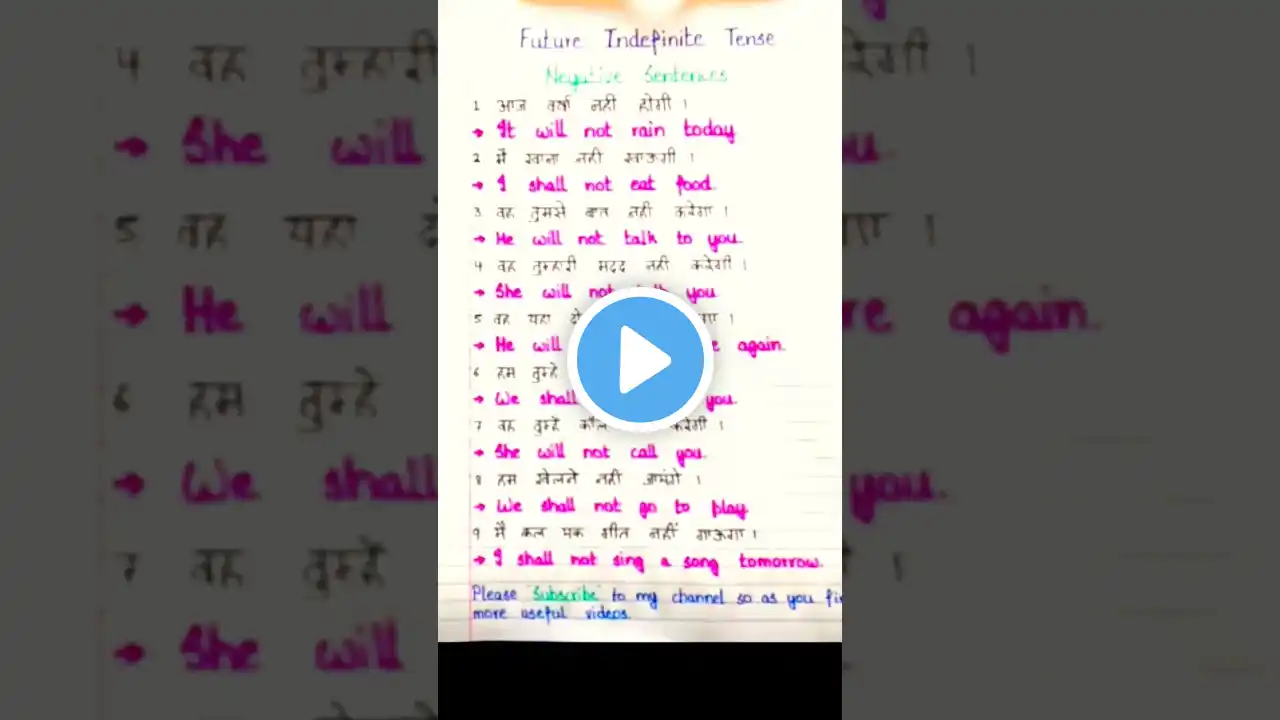 Future Indefinite Tense
Negative Sentences
1 आज वर्षा नही होगी ।
→ It will not rain today
2 मैं खाना नही खाऊगी ।
→ I shall not eat food.
3 वह तुमसे बात नही करेगा ।
→ He will not talk to you.
4 वह तुम्हारी मदद नही करेगी ।
→ She will not you
5 वह यहा
→ He will again.
6 हम तुम्हे
→ We shall you.
7 वह तुम्हें कॉल करेगी ।
→ She will not call you.
8 हम खेलने नही ।
→ We shall not go to play.
9 मैं कल गीत नहीं गाऊगा ।
→ I shall not sing a song tomorrow.
Please "Subscribe" to my channel so as you
more useful videos.